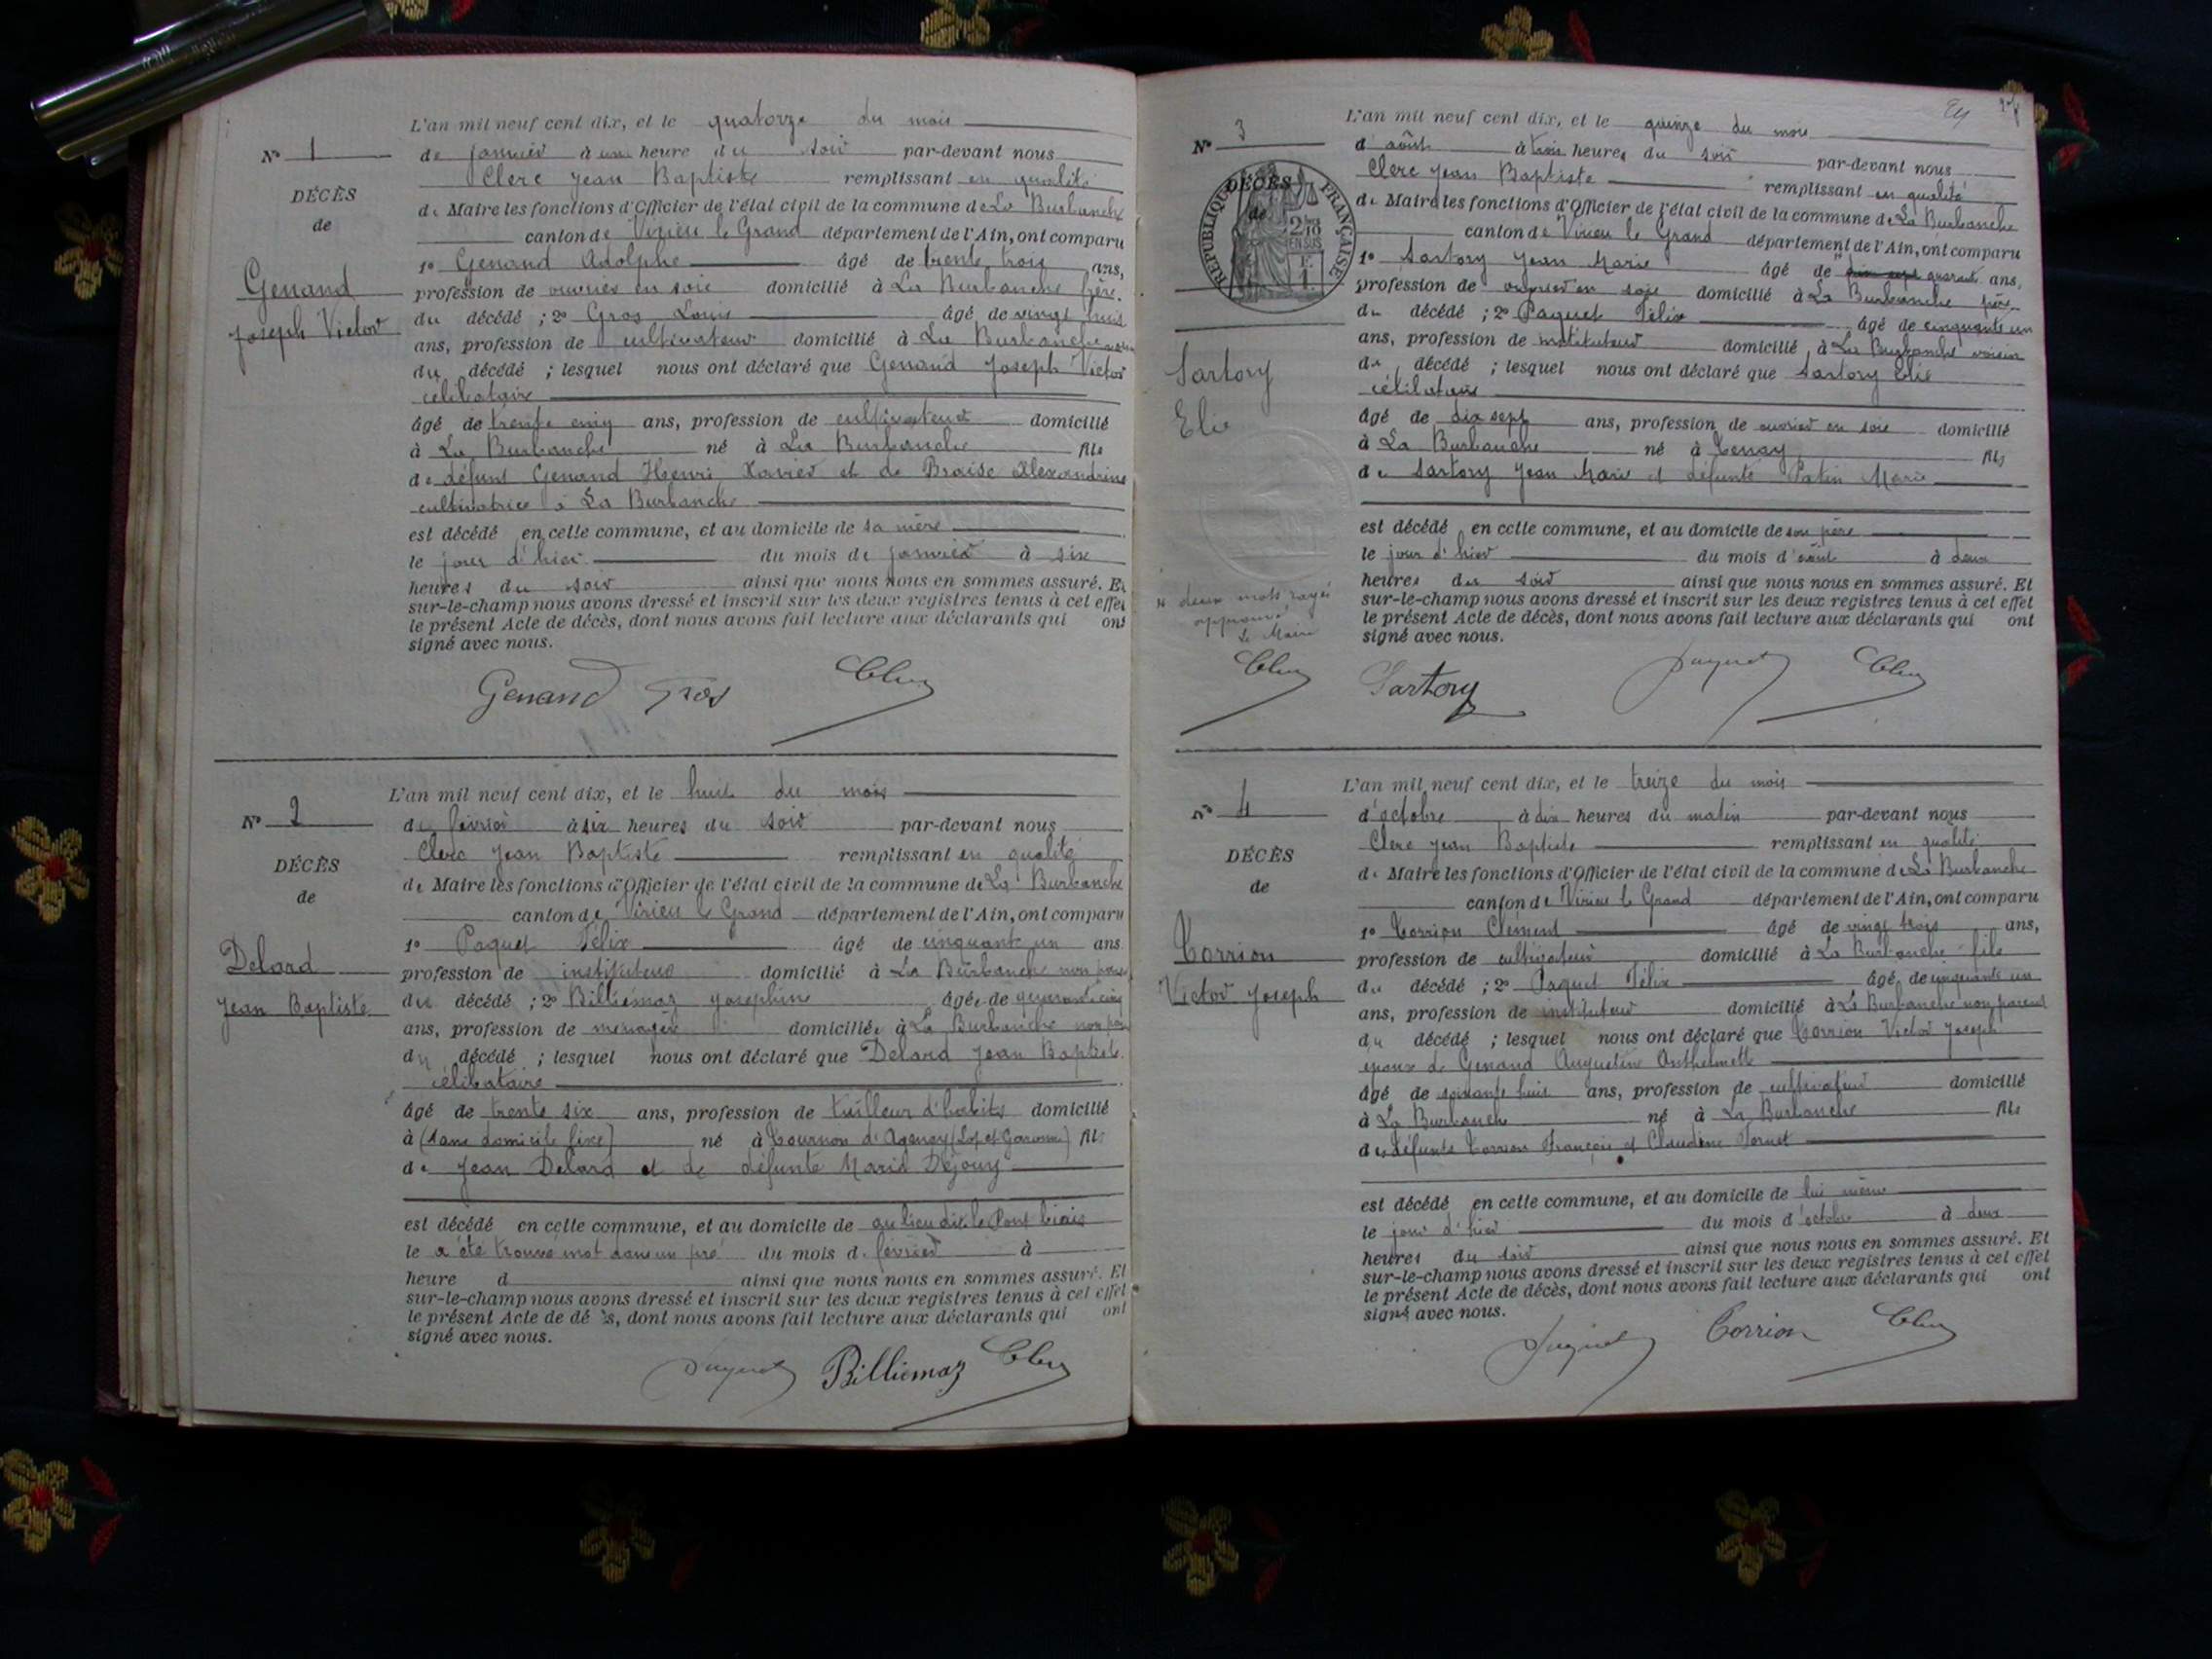 L'an mil neuf cent dix, et le quatorze du mois
Nº 1
de janvier à une heure du soir par-devant nous
Clerc Jean Baptiste remplissant en qualité
DÉCÈS
de Maire les fonctions d'Officier de l'état civil de la commune de La Burbanche
de
canton de Virieu le Grand département de l'Ain, ont comparu
1º Genand Adolphe âgé de trente trois ans,
Genand
profession de ouvrier en soie domicilié à La Burbanche frère
Joseph Victor
du décédé ; 2º Gros Louis âgé de vingt huit
ans, profession de cultivateur domicilié à La Burbanche
du décédé ; lesquel nous ont déclaré que Genand Joseph Victor
célibataire
âgé de trente cinq ans, profession de cultivateur domicilié
à La Burbanche né à La Burbanche fils
de défunt Genand Henri Xavier et de Braise Alexandrine
cultivatrice à La Burbanche
est décédé en cette commune, et au domicile de sa mère
le jour d'hier du mois de janvier à six
heures du soir ainsi que nous nous en sommes assuré. Et
sur-le-champ nous avons dressé et inscrit sur les deux registres tenus à cet effet
le présent Acte de décès, dont nous avons fait lecture aux déclarants qui ont
signé avec nous.
Genand Gros Clerc
L'an mil neuf cent dix, et le huit du mois
Nº 2
de février à six heures du soir par-devant nous
Clerc Jean Baptiste remplissant en qualité
DÉCÈS
de Maire les fonctions d'Officier de l'état civil de la commune de La Burbanche
de
canton de Virieu le Grand département de l'Ain, ont comparu
1º Paquet Félix âgé de cinquante un ans
Delard
profession de instituteur domicilié à La Burbanche non parent
Jean Baptiste
du décédé ; 2º Billiemaz Joséphine âgée de quarante cinq
ans, profession de ménagère domiciliée à La Burbanche non par
du décédé ; lesquel nous ont déclaré que Delard Jean Baptiste
célibataire
âgé de trente six ans, profession de tailleur d'habits domicilié
à (sans domicile fixe) né à Tournon d'Agenay (Lot et Garonne) fils
de Jean Delard et de défunte Marie Dejouy
est décédé en cette commune, et au domicile de au lieu dit le Pont biais
le a été trouvé mort dans un pré du mois de février à
heure d ainsi que nous nous en sommes assuré. Et
sur-le-champ nous avons dressé et inscrit sur les deux registres tenus à cet effet
le présent Acte de décès, dont nous avons fait lecture aux déclarants qui ont
signé avec nous.
Paquet Billiemaz Clerc
24
L'an mil neuf cent dix, et le quinze du mois
Nº 3
d'août à trois heures du soir par-devant nous
RÉPUBLIQUE FRANÇAISE
2/10
EN SUS
F.
1.
Clerc Jean Baptiste remplissant en qualité
DÉCÈS
de Maire les fonctions d'Officier de l'état civil de la commune de La Burbanche
de
canton de Virieu le Grand département de l'Ain, ont comparu
1º Sartory Jean Marie âgé de dix sept quarante ans,
profession de ouvrier en soie domicilié à La Burbanche père
du décédé ; 2º Paquet Félix âgé de cinquante un
ans, profession de instituteur domicilié à La Burbanche voisin
Sartory
Elie
du décédé ; lesquel nous ont déclaré que Sartory Elie
célibataire
âgé de dix sept ans, profession de ouvrier en soie domicilié
à La Burbanche né à Tenay fils
de Sartory Jean Marie et défunte Patin Marie
est décédé en cette commune, et au domicile de son père
le jour d'hier du mois d'août à deux
heures du soir ainsi que nous nous en sommes assuré. Et
sur-le-champ nous avons dressé et inscrit sur les deux registres tenus à cet effet
le présent Acte de décès, dont nous avons fait lecture aux déclarants qui ont
signé avec nous.
deux mots rayés
approuvé
Le Maire
Clerc Sartory Paquet Clerc
L'an mil neuf cent dix, et le treize du mois
Nº 4
d'octobre à dix heures du matin par-devant nous
Clerc Jean Baptiste remplissant en qualité
DÉCÈS
de Maire les fonctions d'Officier de l'état civil de la commune de La Burbanche
de
canton de Virieu le Grand département de l'Ain, ont comparu
1º Corrion Clément âgé de vingt trois ans,
Corrion
profession de cultivateur domicilié à La Burbanche fils
Victor Joseph
du décédé ; 2º Paquet Félix âgé de cinquante un
ans, profession de instituteur domicilié à La Burbanche non parent
du décédé ; lesquel nous ont déclaré que Corrion Victor Joseph
époux de Genand Augustine Anthelmette
âgé de soixante huit ans, profession de cultivateur domicilié
à La Burbanche né à La Burbanche fils
des défunts Corrion François et Claudine Fornet
est décédé en cette commune, et au domicile de lui même
le jour d'hier du mois d'octobre à deux
heures du soir ainsi que nous nous en sommes assuré. Et
sur-le-champ nous avons dressé et inscrit sur les deux registres tenus à cet effet
le présent Acte de décès, dont nous avons fait lecture aux déclarants qui ont
signé avec nous.
Paquet Corrion Clerc